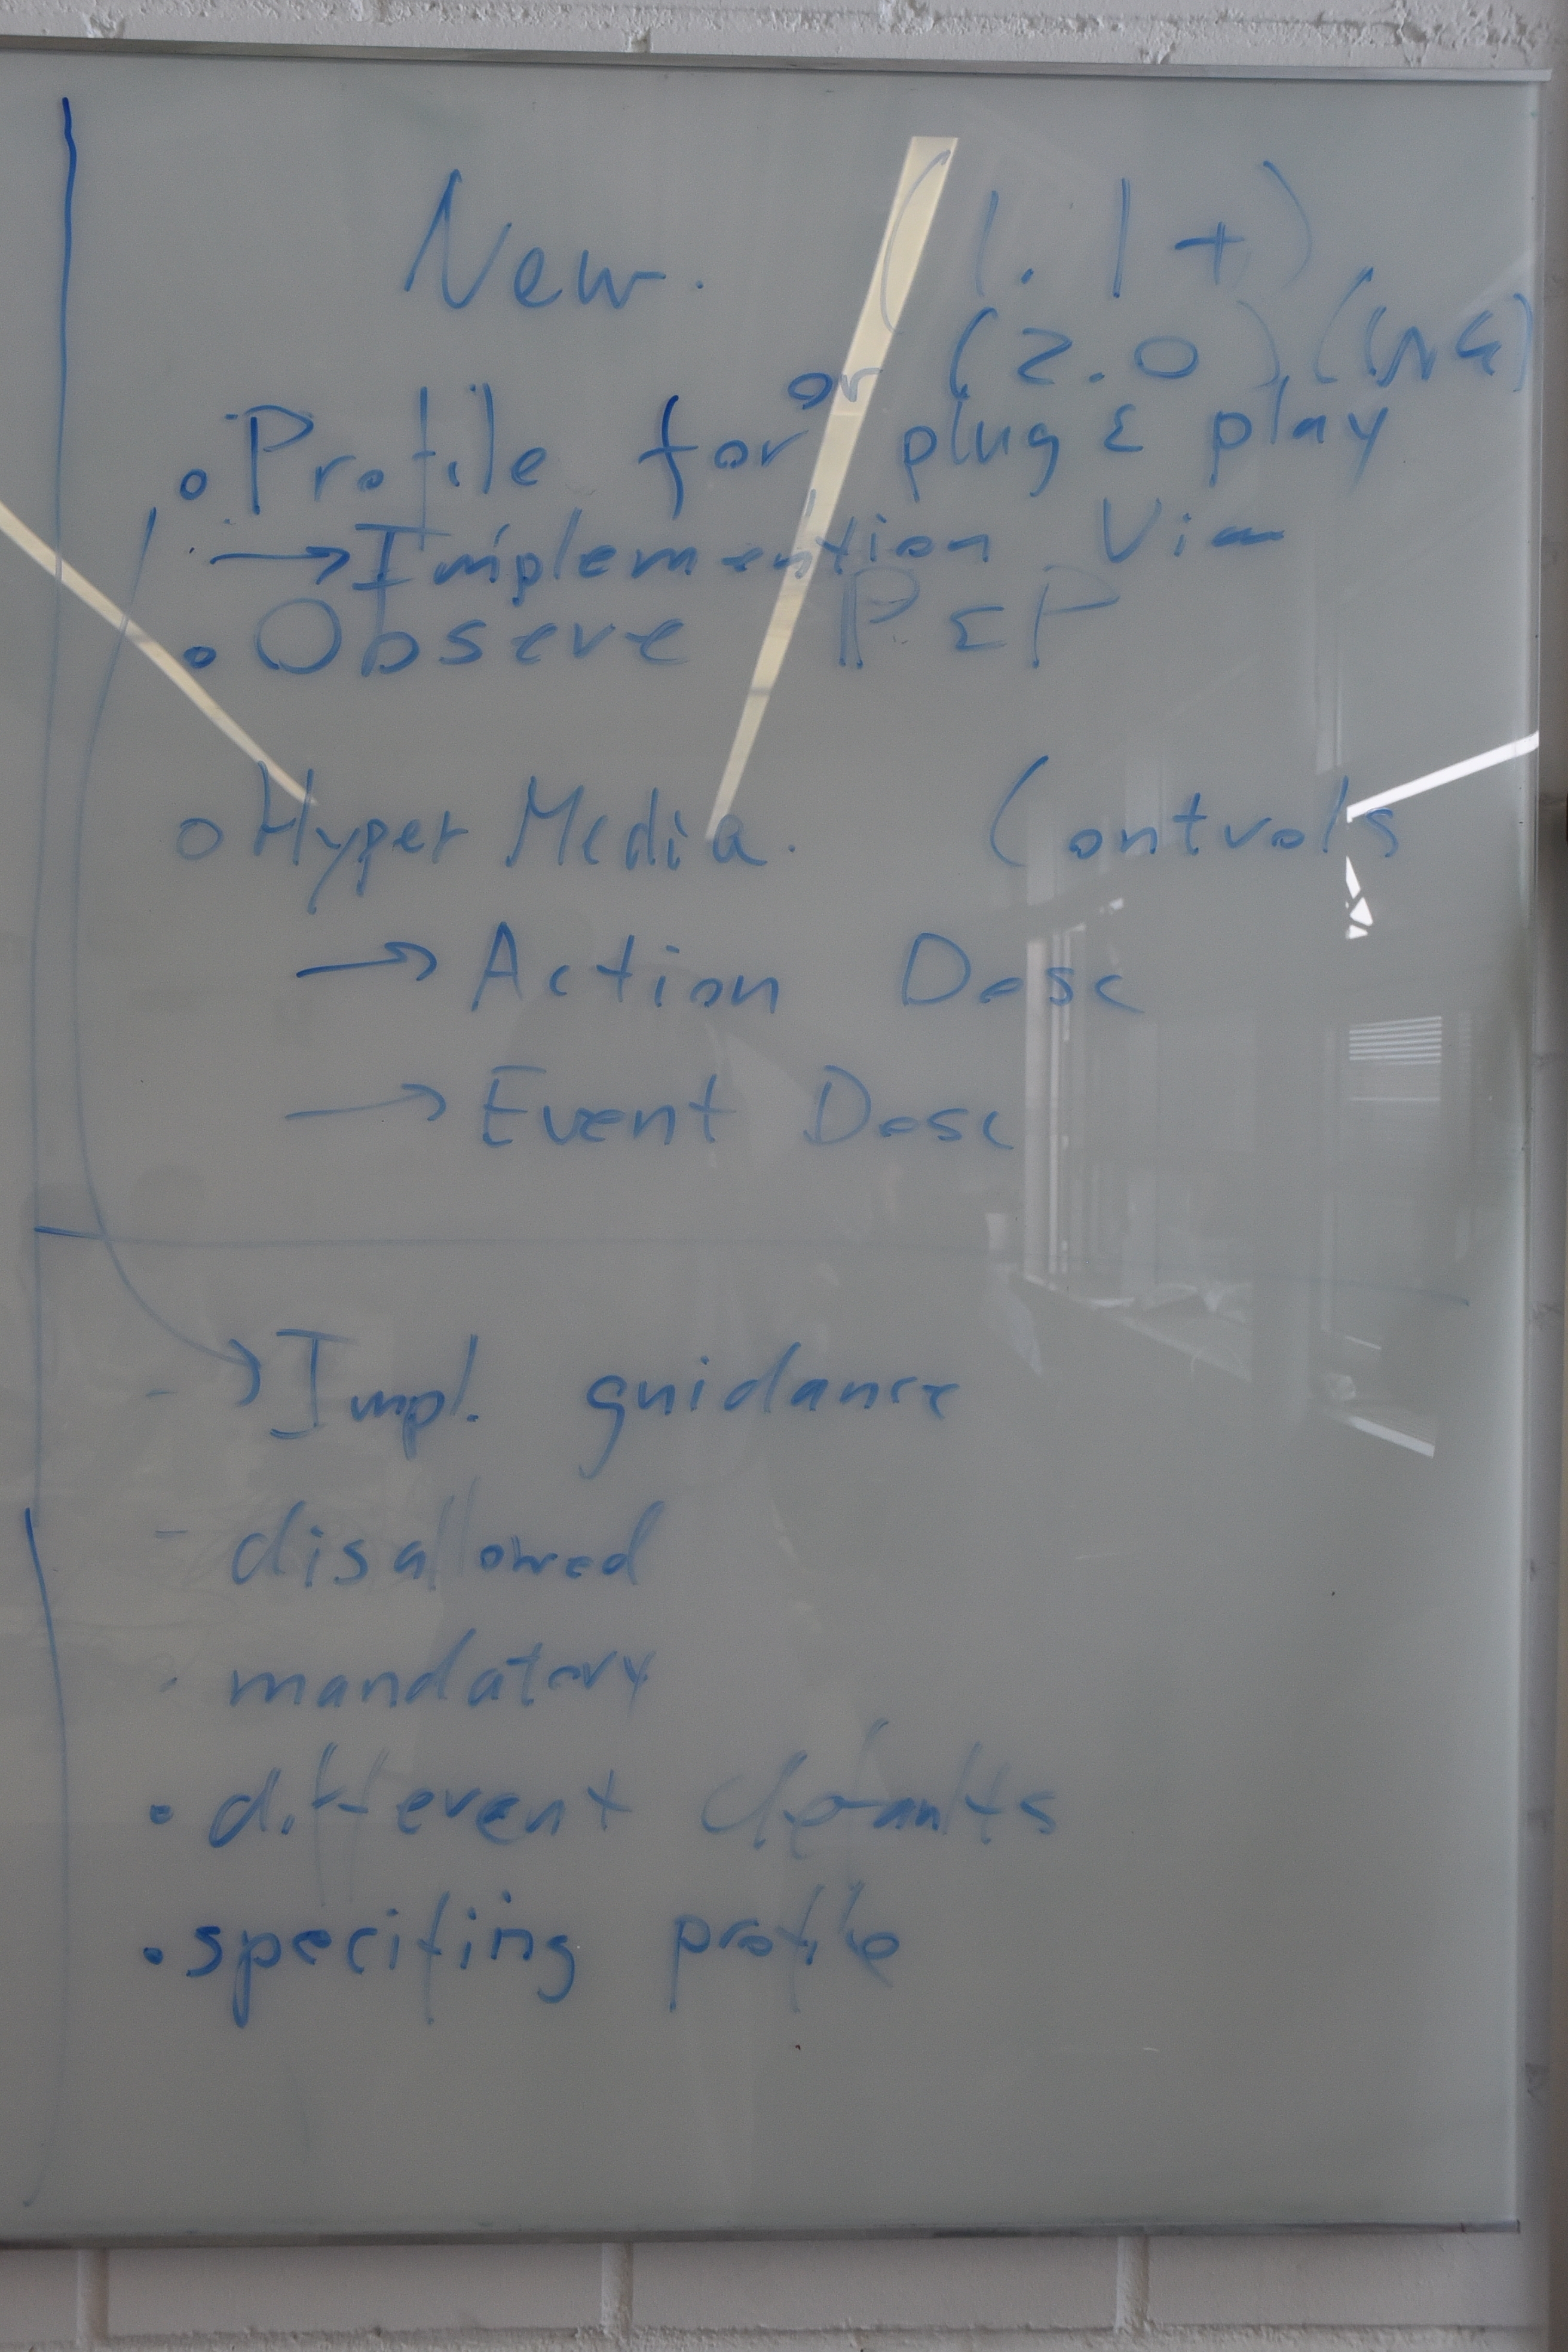 New. (1.1+)
or (2.0), (WG)
• Profile for plug & play
→ Implemention View
• Observe P&P
• Hyper Media. Controls
→ Action Desc
→ Event Desc
- → Impl. guidance
- disallowed
- mandatory
• different defaults
• specifing profile